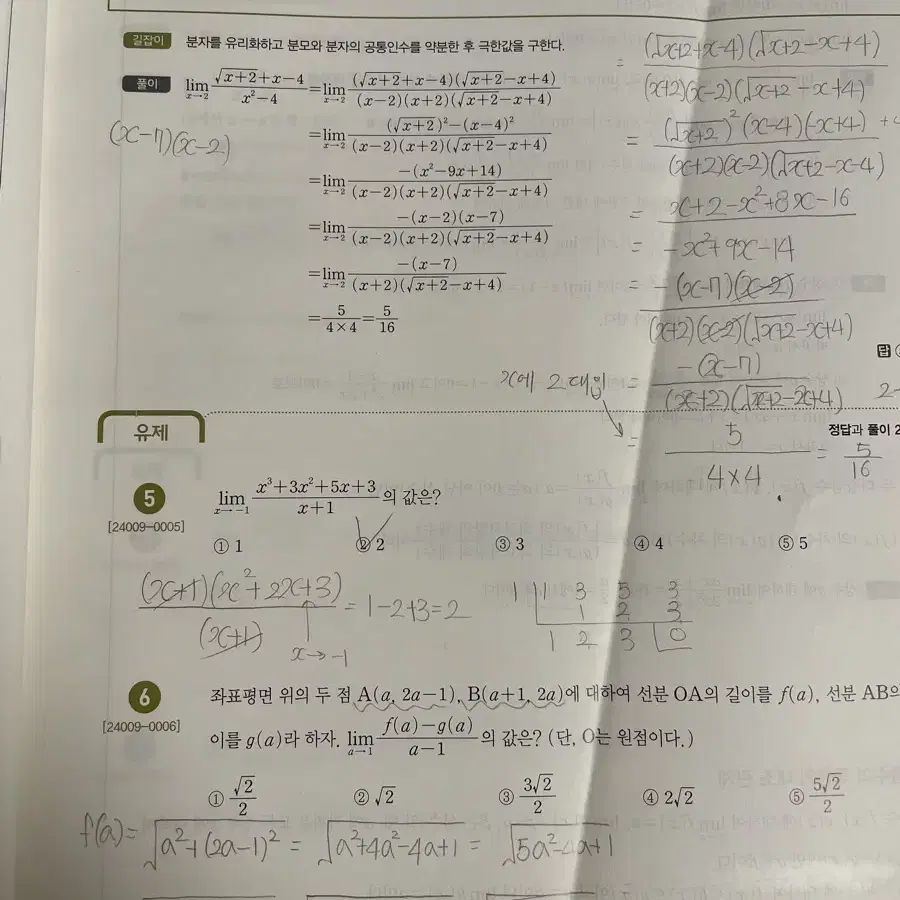 길잡이 분자를 유리화하고 분모와 분자의 공통인수를 약분한 후 극한값을 구한다.
풀이 lim_{x→2} (√(x+2)+x-4)/(x²-4) = lim_{x→2} ((√(x+2)+x-4)(√(x+2)-x+4))/((x-2)(x+2)(√(x+2)-x+4))
= lim_{x→2} ((√(x+2))²-(x-4)²)/((x-2)(x+2)(√(x+2)-x+4))
= lim_{x→2} (-(x²-9x+14))/((x-2)(x+2)(√(x+2)-x+4))
= lim_{x→2} (-(x-2)(x-7))/((x-2)(x+2)(√(x+2)-x+4))
= lim_{x→2} (-(x-7))/((x+2)(√(x+2)-x+4))
= 5/(4×4) = 5/16
(x-7)(x-2)
= ((√(x+2)+x-4)(√(x+2)-x+4))/((x+2)(x-2)(√(x+2)-x+4))
= ((√(x+2))²(x-4)(-x+4))/((x+2)(x-2)(√(x+2)-x-4))
= x+2-x²+8x-16
= -x²+9x-14
= (-(x-7)(x-2))/((x+2)(x-2)(√(x+2)-x+4))
x에 2 대입 = (-(x-7))/((x+2)(√(x+2)-x+4))
= 5/(4×4) = 5/16
답
2-
유제
정답과 풀이 2
5 lim_{x→-1} (x³+3x²+5x+3)/(x+1)의 값은?
[24009-0005]
① 1 ② 2 ③ 3 ④ 4 ⑤ 5
((x+1)(x²+2x+3))/(x+1) = 1-2+3=2
x→-1
1 1 3 5 3
1 2 3
1 2 3 0
6 좌표평면 위의 두 점 A(a, 2a-1), B(a+1, 2a)에 대하여 선분 OA의 길이를 f(a), 선분 AB의
[24009-0006]
이를 g(a)라 하자. lim_{a→1} (f(a)-g(a))/(a-1)의 값은? (단, O는 원점이다.)
① √2/2 ② √2 ③ 3√2/2 ④ 2√2 ⑤ 5√2/2
f(a)= √(a²+(2a-1)²) = √(a²+4a²-4a+1) = √(5a²-4a+1)